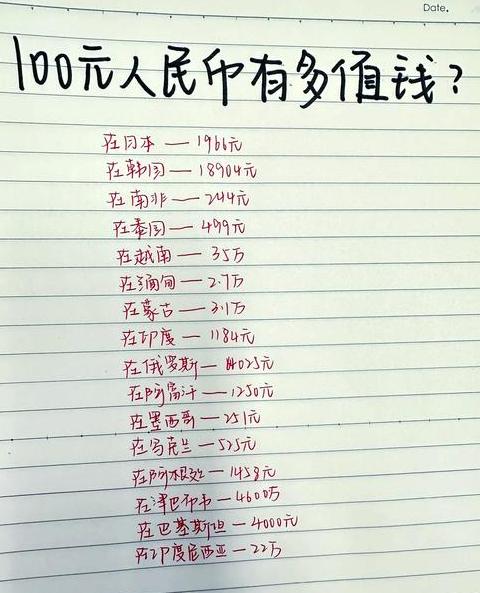 Date.
100元人民币有多值钱?
在日本 — 1966元
在韩国 — 18904元
在南非 — 244元
在泰国 — 499元
在越南 — 35万
在缅甸 — 2.7万
在蒙古 — 3.1万
在印度 — 1184元
在俄罗斯 — 1025元
在阿富汗 — 1250元
在墨西哥 — 251元
在乌克兰 — 525元
在阿根廷 — 1458元
在津巴布韦 — 4600万
在巴基斯坦 — 4000元
在印度尼西亚 — 22万